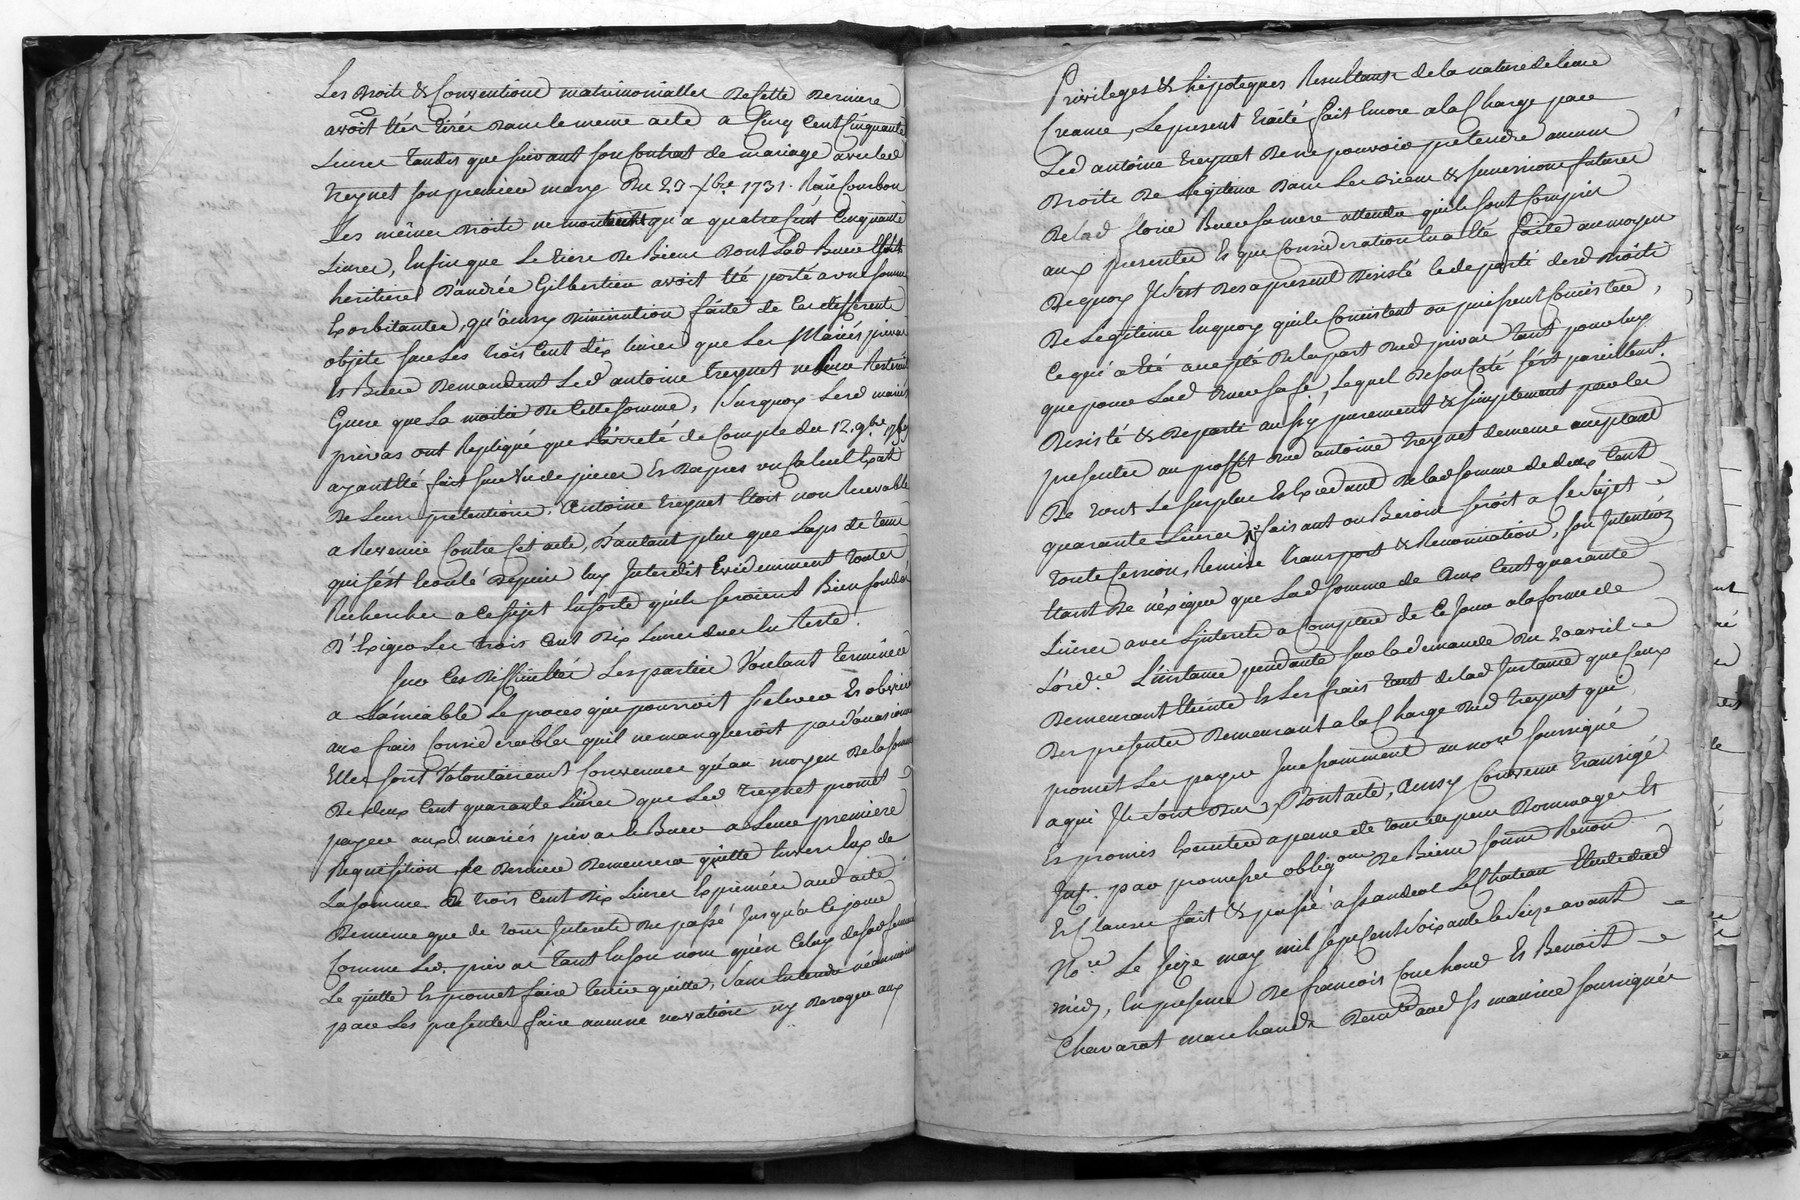 Les droits & Conventions matrimonialles de cette derniere
avoit étés tirés dans le meme acte a Cinq cent Cinquante
Livres tandis que suivant son Contrat de mariage avec led
treynet son premier mary du 23 xbre 1731.
Les mêmes droits ne montent qu'a quatre cent Cinquante
Livres, Enfin que Le tiers des Biens dont Lad Buer étoit
heritiere d'andrée Gilbertier avoit été porté a une somme
Exorbitante, qu'ainsy diminution faite de Ces differents
objets sur Les trois cent dix livres que Les Mariés privas
Et Buer demandent Led antoine treynet ne leur resteroit
Guere que La moitié de Cette somme, Surquoy Lesd mariés
privas ont Repliqué que L'arreté de Compte du 12. 9bre
ayant été fait sur vu de pieces Et d'apres un Calcul Exat
de Leurs pretentions, Antoine treynet étoit non Recevable
a Revenir Contre Cet acte, d'autant plus que Laps de tems
qui s'est Ecoulé depuis luy Interdit Evidemment toutes
Recherches a ce sujet Ensorte qu'ils seroient Bien fondés
d'Exiger Les trois Cent dix Livres
Sur Ces difficultés Les parties Voulant terminer
a L'amiable Le proces qui pourroit s'elever Et obvier
aux frais Considerables qu'il ne manqueroit pas d'occasionner
Elles sont Volontairement Convenues qu'au moyen de la somme
de deux Cent quarante Livres que Led treynet promet
payer auxd mariés privas & Buer a Leur premiere
Requisition Ce dernier demeurera quitte Envers Eux de
La somme de trois Cent dix Livres Exprimée aud acte
de meme que de tous Interets du passé Jusqu'a Ce jour
Comme Led. privas tant En son nom qu'en Celuy de sad femme
Le quitte Et promet faire tenir quitte, sans Entendre néanmoins
par Les presentes faire aucune novation ny deroger aux
Privileges & hipoteques Resultants de la nature de leur
Creance, Le present traité fait Encore a la Charge par
Led antoine treynet de ne pouvoir pretendre aucuns
droits de Legitime dans Les Biens & successions futures
de lad Buer sa mere attendu qu'ils sont Compris
aux presentes Et que Consideration En a été faite au moyen
de quoy Il s'est des a present desisté & departi desd droits
de Legitime Enquoy qu'ils Consistent ou puissent Consister,
Ce qui a été accepté de la part dud privas tant pour luy
que pour Lad Buer sa fe, Lequel de son Côté s'est pareillement
desisté & departi aussy purement & simplement par les
presentes au proffit dud antoine treynet de meme acceptant
de tout Le surplus Et Excedant de lad somme de deux Cent
quarante Livres faisant ou Besoin seroit a Ce sujet
toute Cession, Remise transport & Renonciation, son Intention
étant de n'éxiger que Lad somme de deux Cent quarante
Livres avec Interets a Compter de Ce Jour a la forme de
L'ordce. L'instance pendante sur la demande du 20 avril
demeurant éteinte Et Les frais tant de lad Instance que Ceux
des presentes demeurant a la Charge dud treynet qui
promet Les payer Incessamment au nore soussigné
a qui Ils sont dus, dont acte, ainsy Convenu transigé
Et promis Executer a peine de tous depens dommages Et
Int. par promesses obligons de Biens soumn Renon
Et Clauses fait & passé a
Nore Le seize may mil sept Cent soixante & seize avant
midy, En presence de francois Couchoud Et Benoit
Chavarot marchands